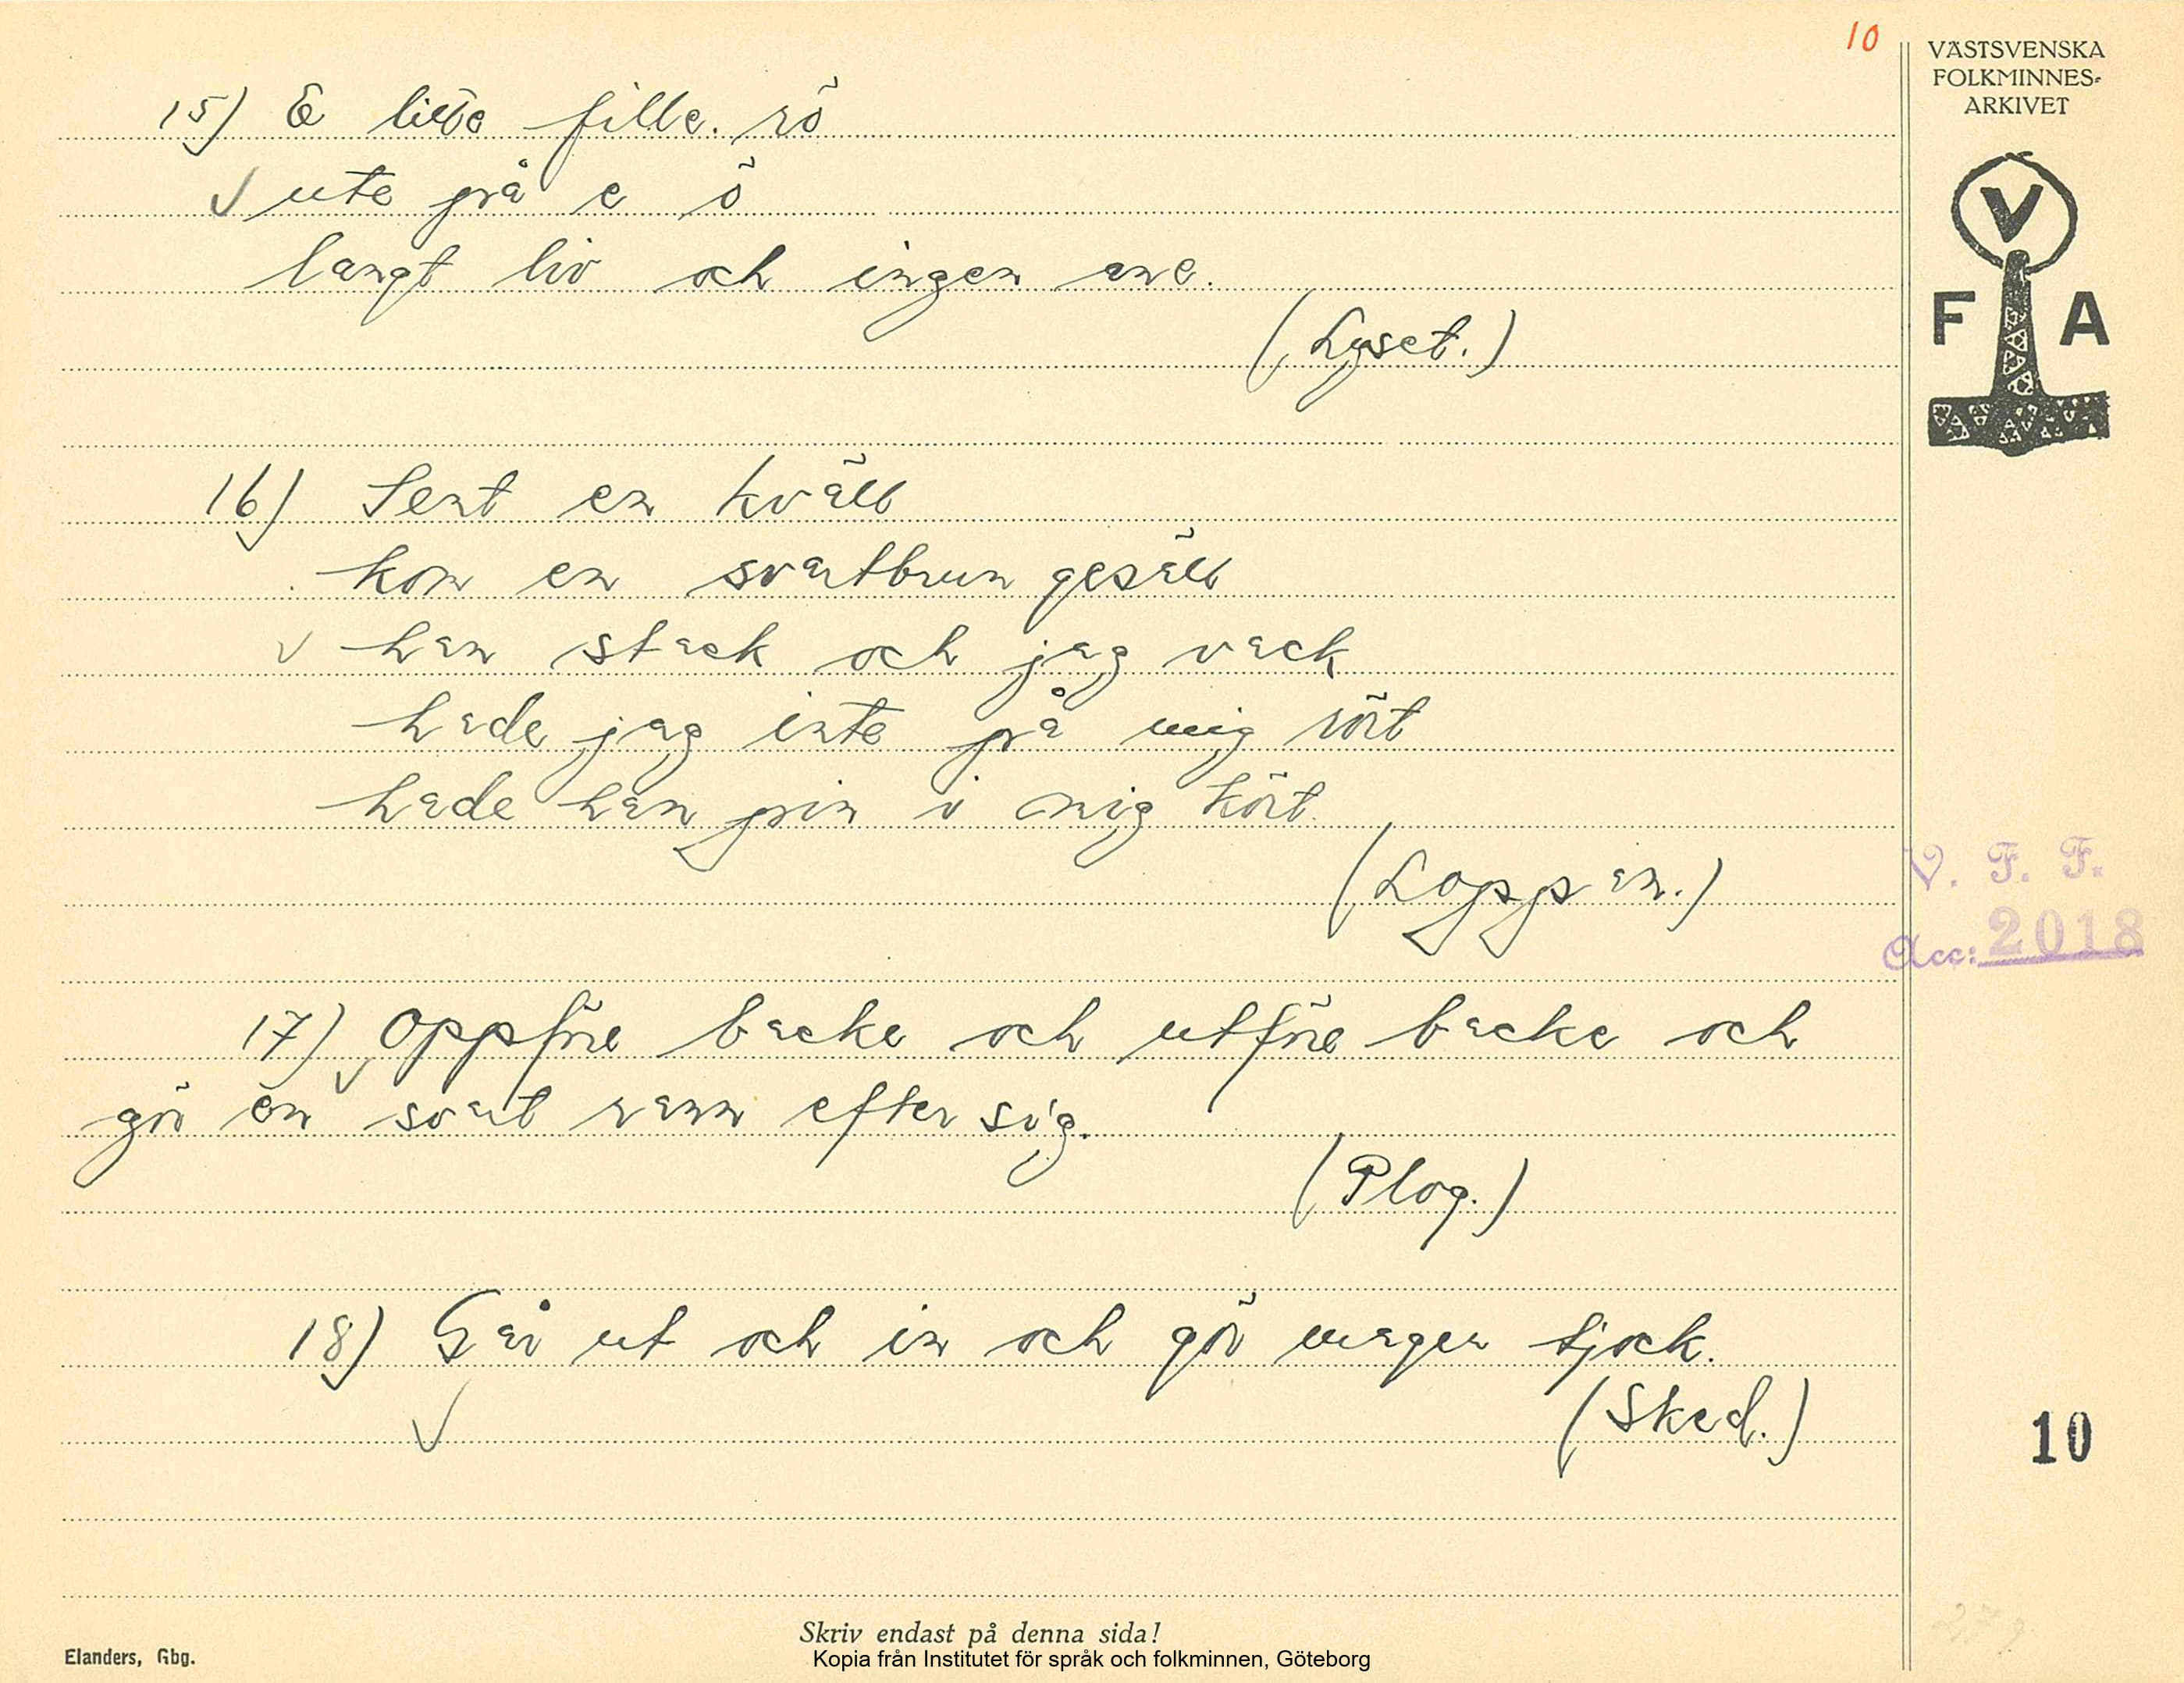 10
VÄSTSVENSKA
FOLKMINNES-
ARKIVET
V
F A
15) E lille fille. rö
ute på e ö
langt liv och ingen ane.
(Lyset.)
16) Sent en kväll
kom en svartbrun gesäll
han stack och jag vack
hade jag inte på mig rört
hade han pin i mig kört.
(Loppan.)
V. F. F.
Acc: 2018
17) Oppföre backe och utföre backe och
gör en svart rann efter sig.
(Plog.)
18) Går ut och in och gör mager tjock.
(Sked.)
10
Skriv endast på denna sida!
Elanders, Gbg.
Kopia från Institutet för språk och folkminnen, Göteborg